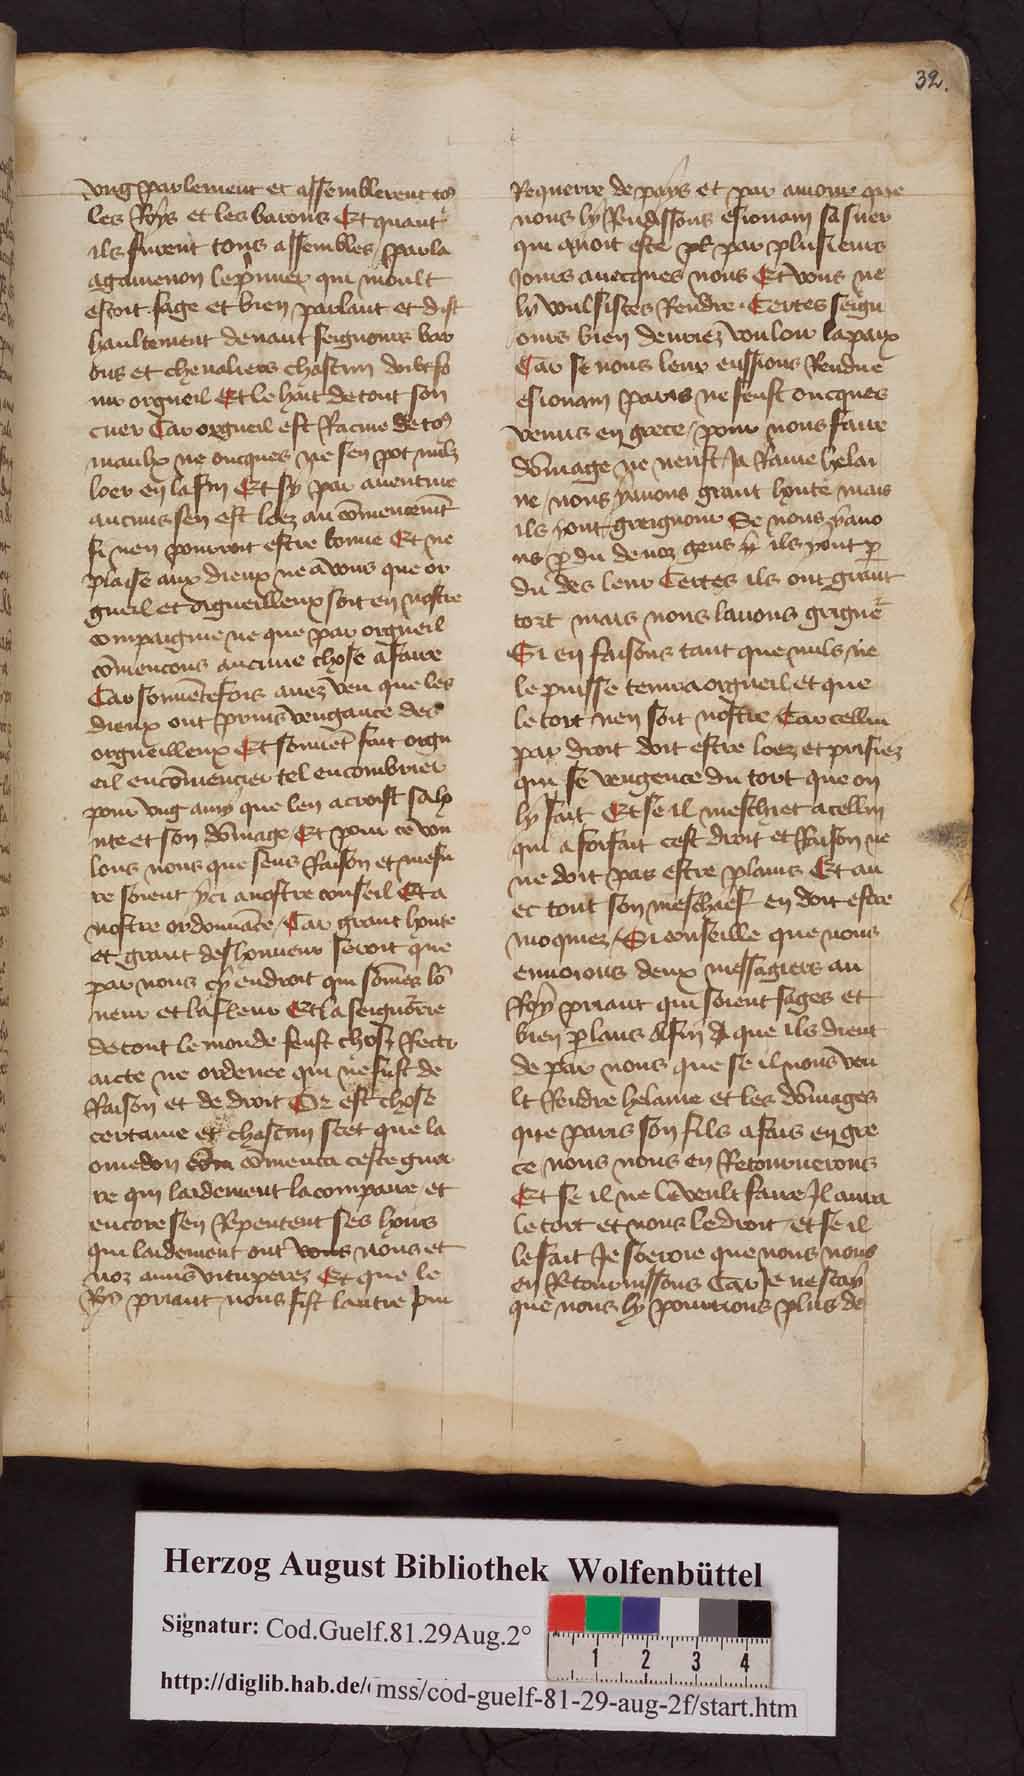 32.
vng parlement et assemblerent to9
les Roys et les barons Et quant
ils furent tous assembles / parla
agamenon le premier qui moult
estoit sage et bien parlant et dist
haultement deuant seignours bar
ons et cheualiers chascun doibt fo
uir orgueil Et le hait de tout son
cuer Car orgueil est Racine de to9
maulx ne oncques ne sen pot nulz
loer en la fin Et sy par auenture
aucuns sen est loez au commencement
si nen pourroit estre bonne Et ne
plaise aux dieux ne a vous que or
gueil et orgueilleux soit en nostre
compaignie ne que par orgueil
commencons aucune chose a faire
Car souuentefois auez veu que les
dieux ont prins vengance des
orgueilleux Et souuent fait orgu
eil encommencier tel encombrier
pour vng amy que len acroist sa ho
nte et son dommage Et pour ce vou
lons nous que sens Raison et mesu
re soient yci a nostre conseil Et a
nostre ordonnance / Car grant honte
et grant deshonneur seroit que
par nous cy endroit qui sommes lo
neur et la fleur Et la seignorie
de tout le monde feust chose
aicte ne ordenee qui ne fust de
Raison et de droit Or est chose
certaine et chascun scet que la
omedon commenca ceste guer
re qui laidement la compare et
encore sen Repentent ses hoirs
qui laidement ont vous nous et
noz amis vituperez Et que le
Roy priant nous fist lautre jour
Requerre de pays et par amour que
nous ly Rendissons esionam sa suer
qui auoit este par plusieurs
Jours auecques nous Et vous ne
ly voulsistes Rendre. Certes seign
ours bien deuriez vouloir la paix
Car se nous leur eussions Rendue
esionam paris ne feust oncques
venus en grece / pour nous faire
dommage ne neust Ja Rauie helai
ne / nous y auons grant honte mais
ils y ont greigneur Se nous y auo
ns perdu de noz gens ils y ont per
du des leur Certes ils ont grant
tort mais nous lauons
Si en faisons tant que nuls ne
le puisse tenir a orgueil et que
le tort nen soit nostre Car cellui
par droit doit estre loez et prisiez
qui se vengence du tort que on
ly fait Et se il meschiet a cellui
qui a forfait cest droit et Raison ne
ne doit pas estre plains Et au
ec tout son meschief en doit estre
moquiez / Si conseille que nous
enuoions deux messagiers au
Roy priant qui soient sages et
bien parlans Afin que ils dient
de par nous que se il nous veu
lt Rendre helaine et les dommages
que paris son fils a fais en gre
ce nous nous en Retournerons
Et se il ne le veult faire Il aura
le tort et nous le droit et se il
le fait Je loeroie que nous nous
en Retournissons Car Je ne scay
que nous ly pourrions plus de
Herzog August Bibliothek Wolfenbüttel
Signatur: Cod.Guelf.81.29Aug.2°
1 2 3 4
http://diglib.hab.de/mss/cod-guelf-81-29-aug-2f/start.htm